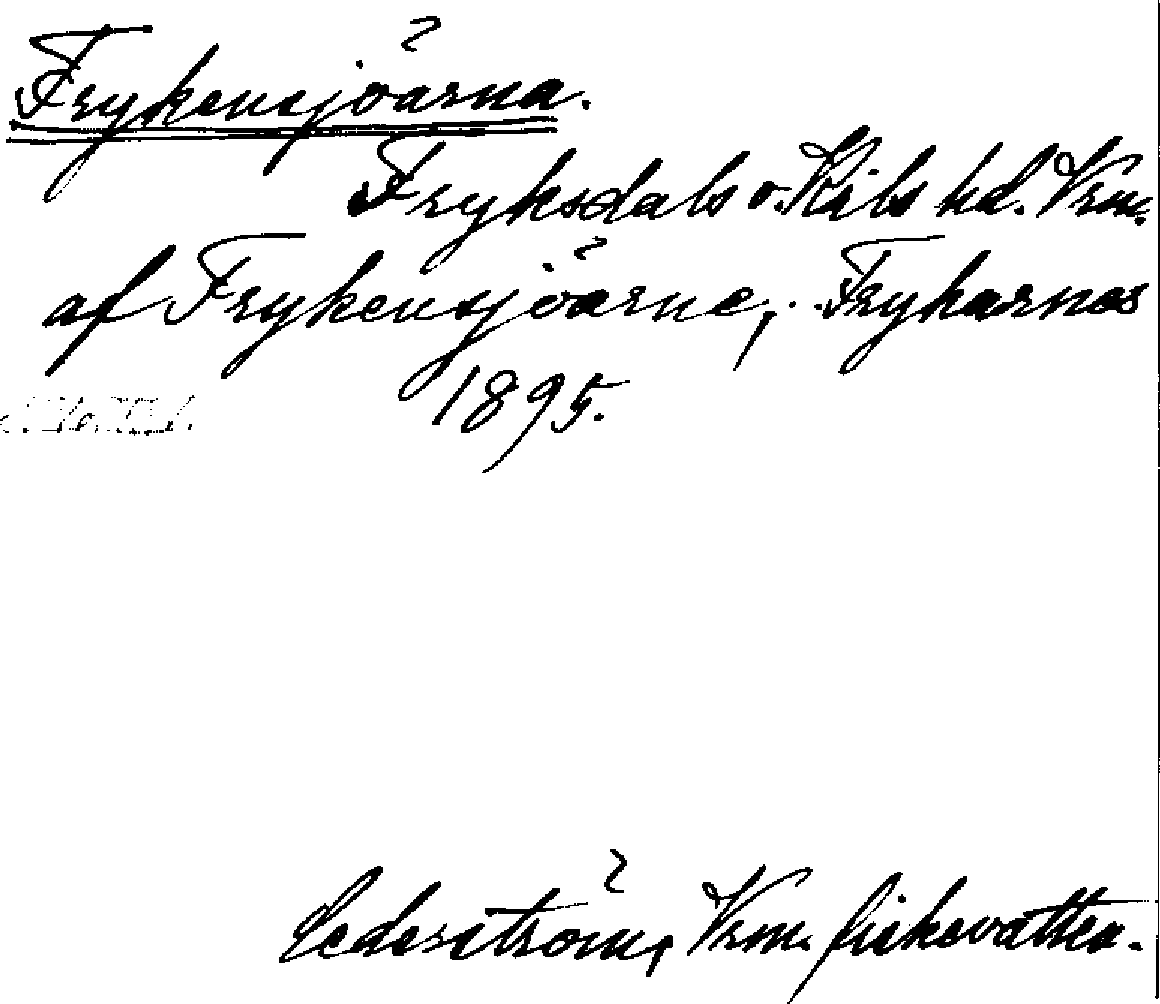 Frykensjöarna.
Fryksdals o. Kils hd. Vrm.
af Frykensjöarne, Frykarnas
1895.
Cederström, Vrm. fiskevatten.